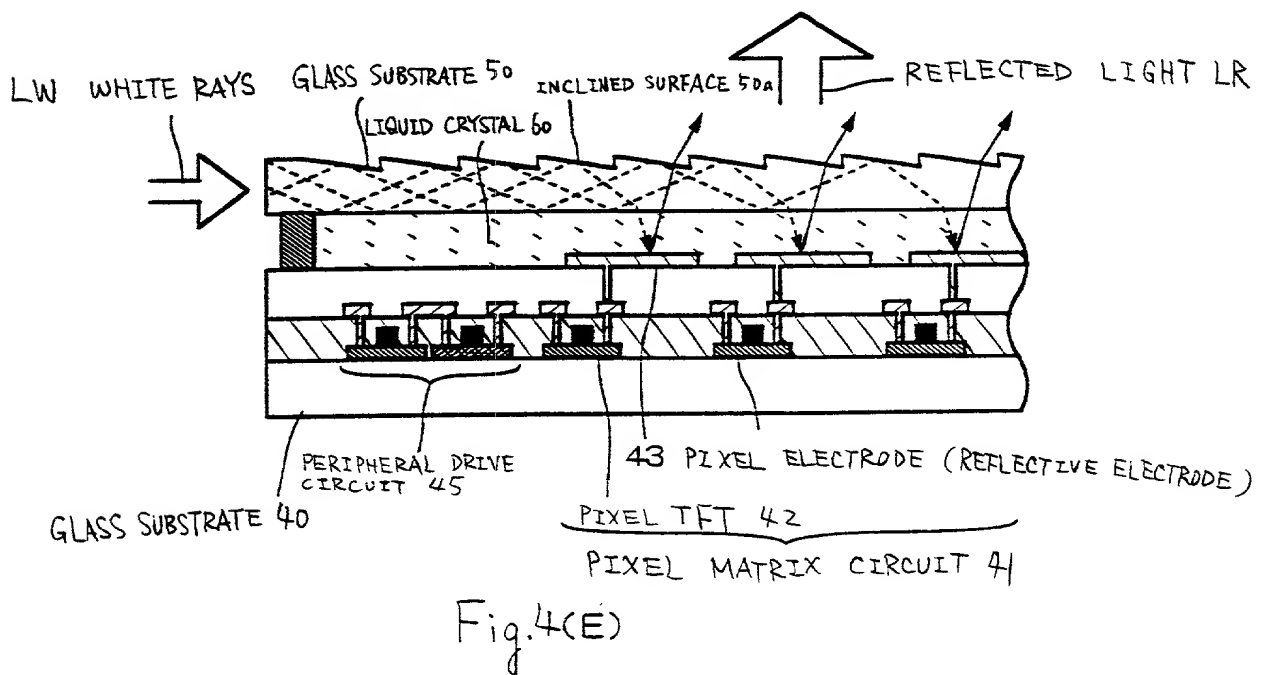 LW WHITE RAYS
GLASS SUBSTRATE 50
INCLINED SURFACE 50a
REFLECTED LIGHT LR
LIQUID CRYSTAL 60
PERIPHERAL DRIVE
CIRCUIT 45
43 PIXEL ELECTRODE (REFLECTIVE ELECTRODE)
GLASS SUBSTRATE 40
PIXEL TFT 42
PIXEL MATRIX CIRCUIT 41
Fig.4(E)